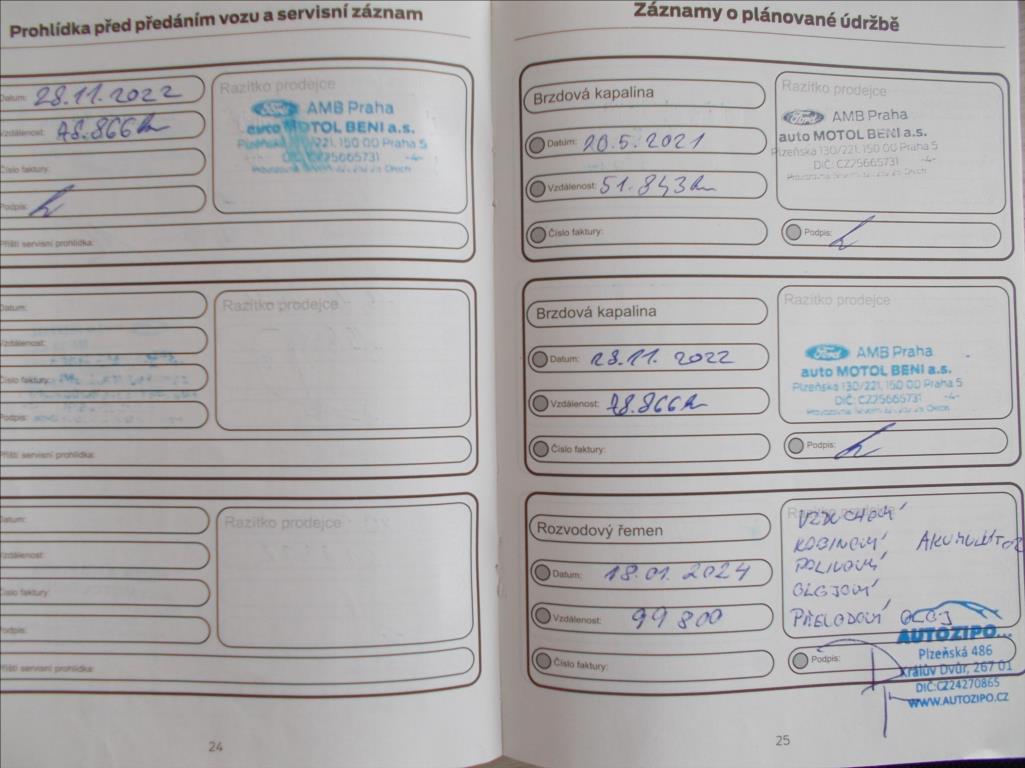 Prohlídka před předáním vozu a servisní záznam
Datum: 28.11.2022
Vzdálenost: 78.866km
Číslo faktury:
Podpis:
Příští servisní prohlídka:
Razítko prodejce
Ford AMB Praha
auto MOTOL BENI a.s.
Plzeňská 130/221, 150 00 Praha 5
DIČ: CZ25665731 -4-
Datum:
Vzdálenost:
Číslo faktury:
Podpis:
Příští servisní prohlídka:
Razítko prodejce
Datum:
Vzdálenost:
Číslo faktury:
Podpis:
Příští servisní prohlídka:
Razítko prodejce
24
Záznamy o plánované údržbě
Brzdová kapalina
Datum: 20.5.2021
Vzdálenost: 51.843km
Číslo faktury:
Razítko prodejce
Ford AMB Praha
auto MOTOL BENI a.s.
Plzeňská 130/221, 150 00 Praha 5
DIČ: CZ25665731 -4-
Podpis:
Brzdová kapalina
Datum: 28.11.2022
Vzdálenost: 78.866km
Číslo faktury:
Razítko prodejce
Ford AMB Praha
auto MOTOL BENI a.s.
Plzeňská 130/221, 150 00 Praha 5
DIČ: CZ25665731 -4-
Podpis:
Rozvodový řemen
Datum: 18.01.2024
Vzdálenost: 99 800
Číslo faktury:
Razítko prodejce
VZDUCHOVÝ
KABINOVÝ AKUMULÁTOR
PALIVOVÝ
OLEJOVÝ
PŘEVODOVÝ OLEJ
Podpis:
AUTOZIPO...
Plzeňská 486
Králův Dvůr, 267 01
DIČ:CZ24270865
WWW.AUTOZIPO.CZ
25